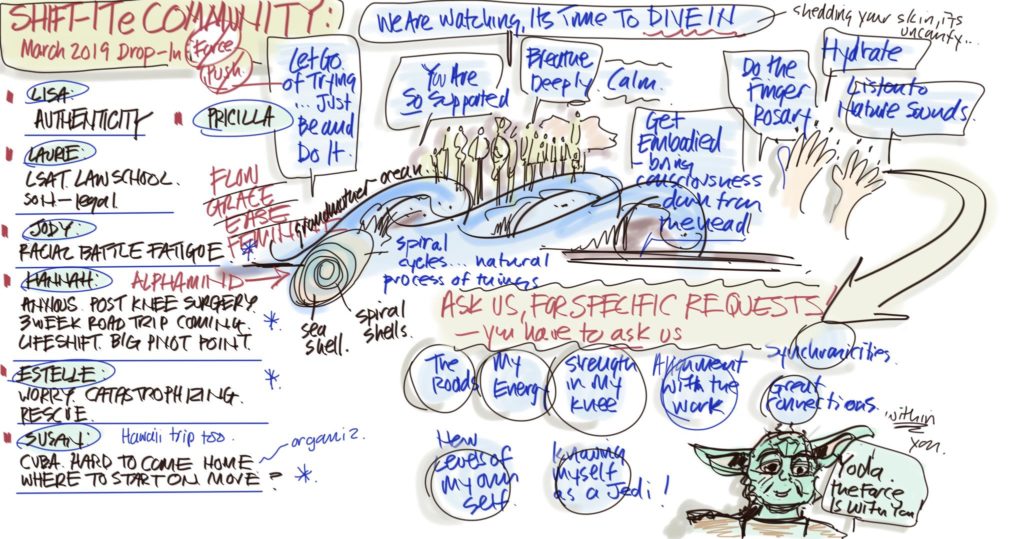 SHIFT-ITe COMMUNITY:
March 2019 Drop-In
Force
Push
LISA:
AUTHENTICITY
PRICILLA
LAURIE:
LSAT. LAW SCHOOL.
SON-legal
JODY
RACIAL BATTLE FATIGUE
HANNAH:
ANXIOUS. POST KNEE SURGERY.
3 WEEK ROAD TRIP COMING.
LIFESHIFT. BIG PIVOT POINT.
ESTELLE:
WORRY. CATASTROPHIZING.
RESCUE.
SUSAN:
Hawaii trip too.
organiz.
CUBA. HARD TO COME HOME
WHERE TO START ON MOVE?
ALPHAMIND
FLOW
GRACE
EASE
We Are Watching, Its Time To DIVE IN
shedding your skin, its
uncomfy...
Let Go
of Trying
... Just
Be and
Do It.
You Are
So Supported
Breathe
Deeply
Calm.
Get
Embodied
- bring
consciousness
down from
the head
Do the
Finger
Rosary
Hydrate
Listen to
Nature Sounds.
grandmother ocean...
spiral
cycles... natural
process of things
sea
shell.
spiral
shells.
ASK US, FOR SPECIFIC REQUESTS!
- you have to ask us
The
Roads
My
Energy
Strength
in My
Knee
Alignment
with the
work
Synchronicities.
Great
Connections.
New
Levels of
my own
self.
Knowing
myself
as a Jedi!
within
you.
Yoda.
the Force
Is With You